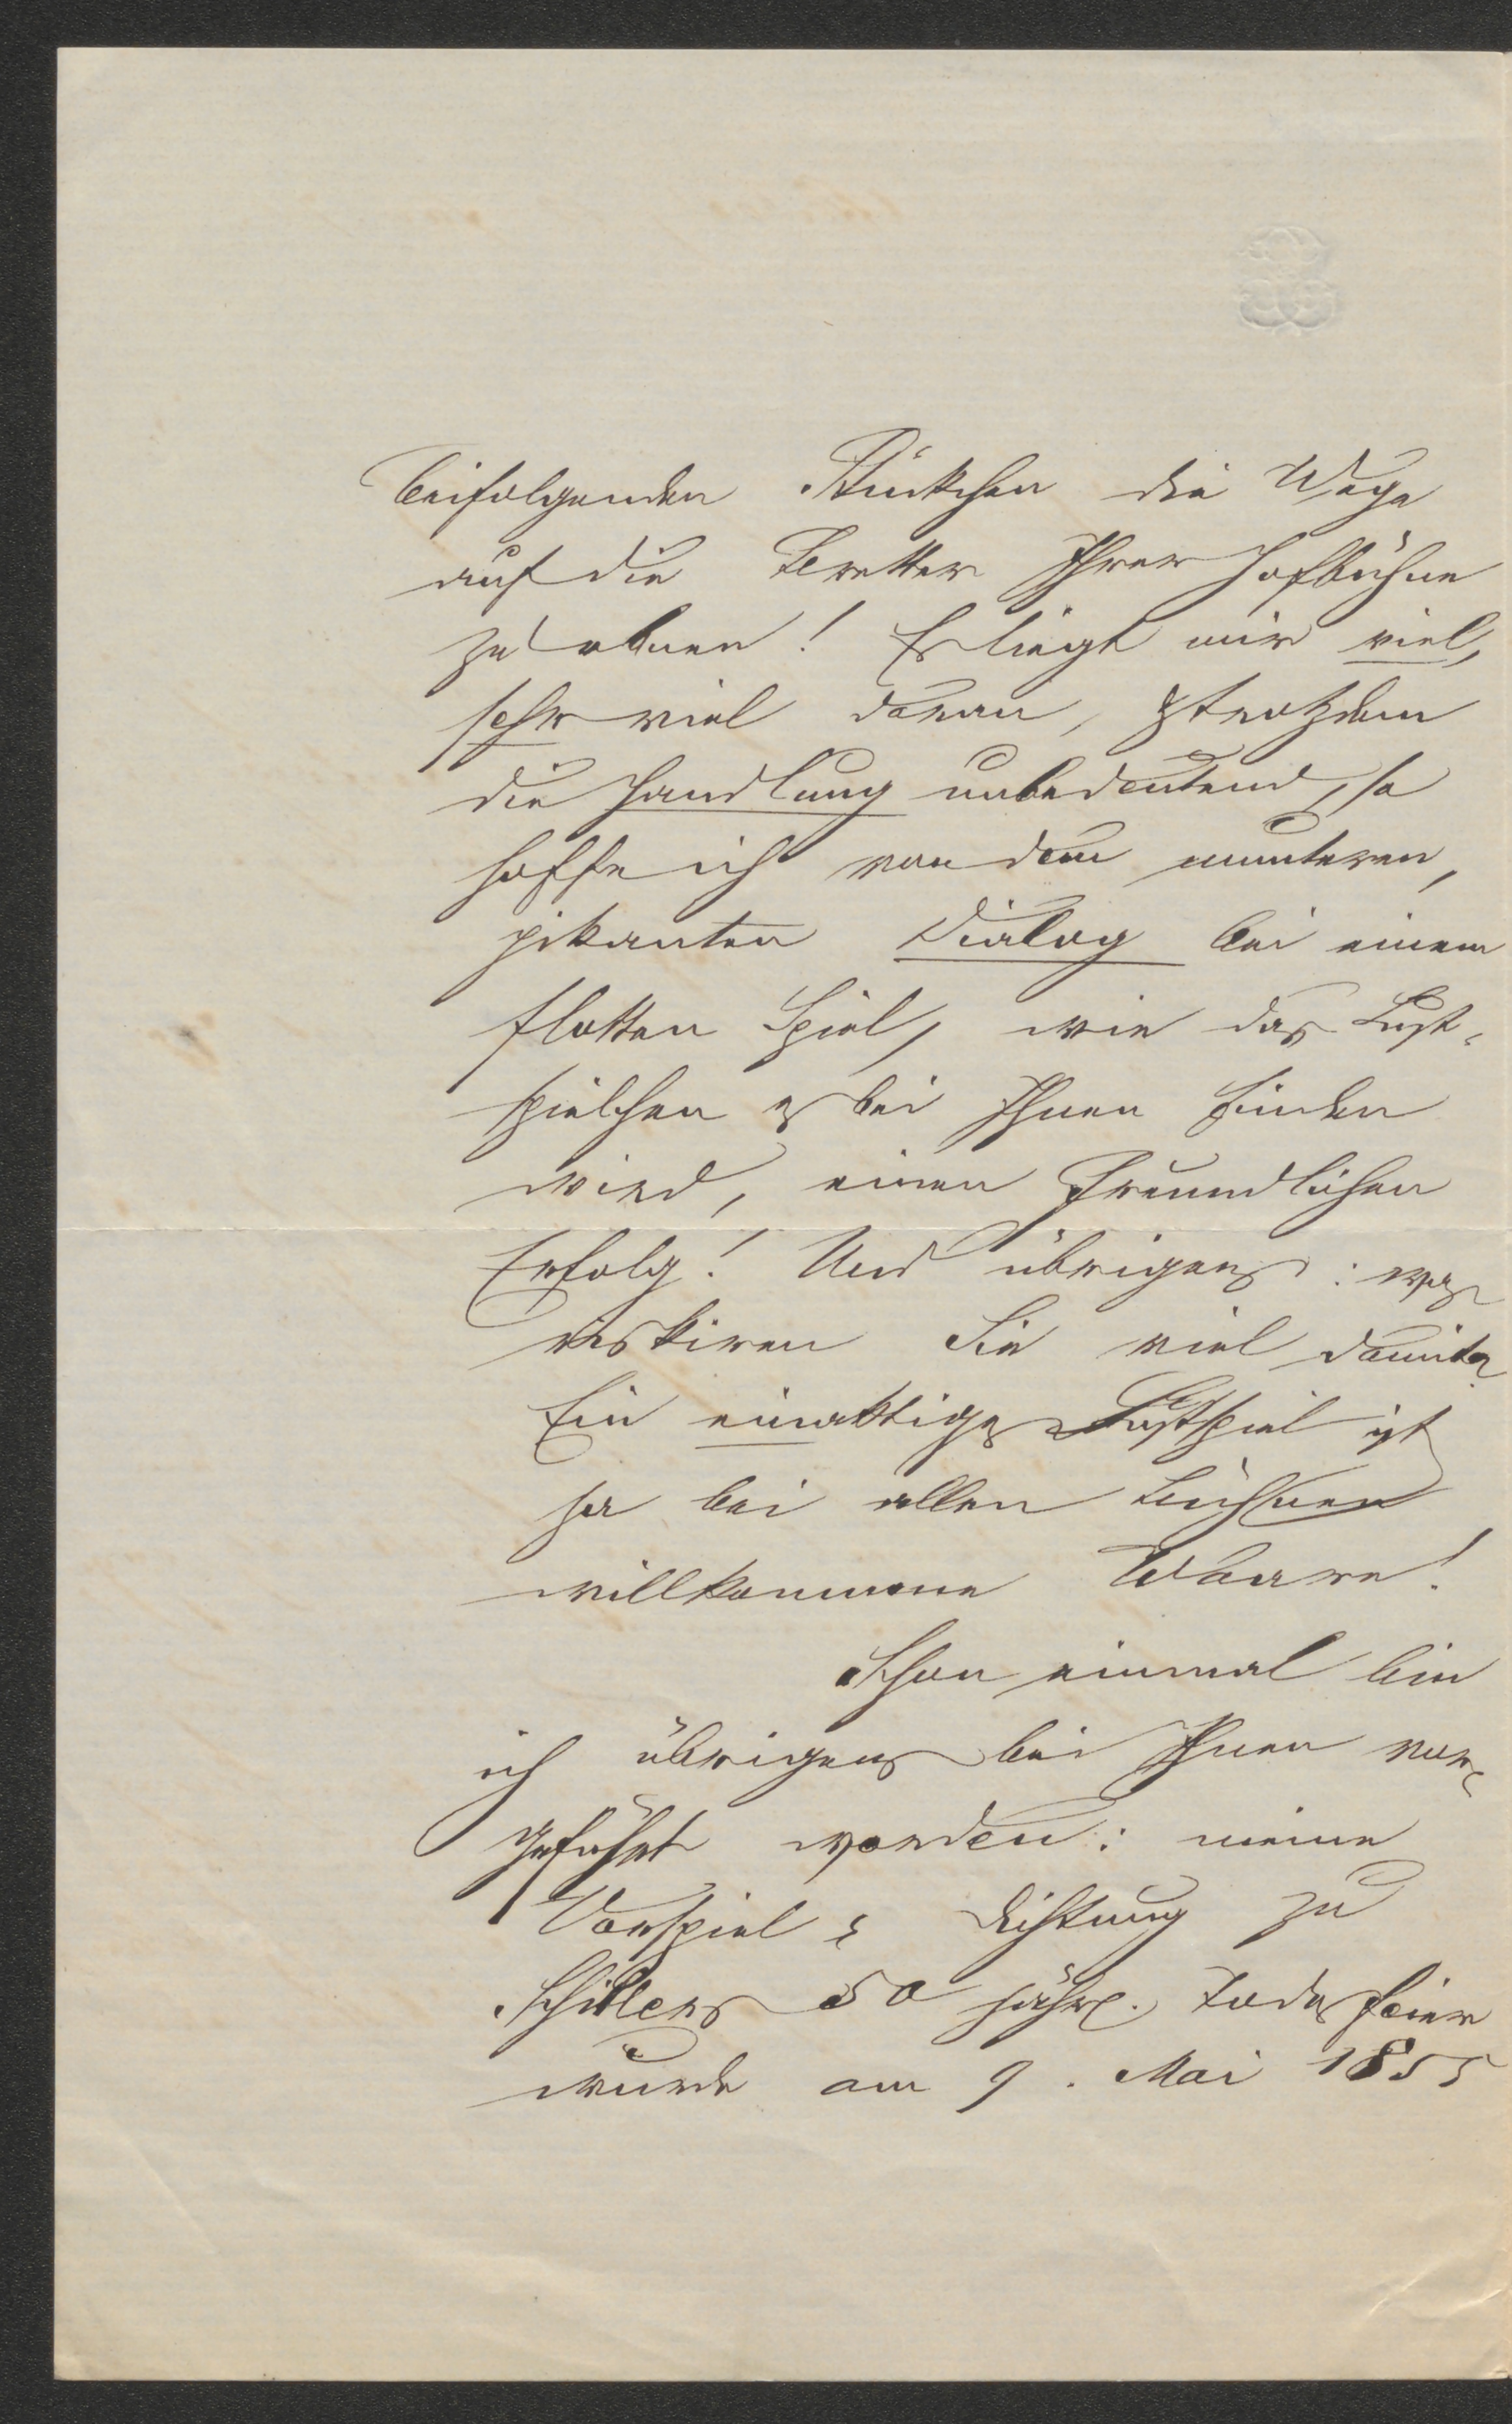 beifolgenden Stückchen die Wege
auf die Bretter Ihrer Hofbühne
zu ebnen! Es liegt mir viel,
sehr viel daran, trotzdem
die Handlung unbedeutend, so
hoffe ich von dem munteren,
pikanten Dialog bei einem
flotten Spiel, wie das Lust-
spielchen es bei Ihnen finden
wird, einen freundlichen
Erfolg! Und übrigens: was
riskiren Sie viel damit?
Ein einaktiges Lustspiel ist
ja bei allen Bühnen
willkommene Waare!
Schon einmal bin
ich übrigens bei Ihnen vor-
geführt worden: meine
Vorspiel-Dichtung zu
Schillers 50 jähr. Todesfeier
wurde am 9. Mai 1855